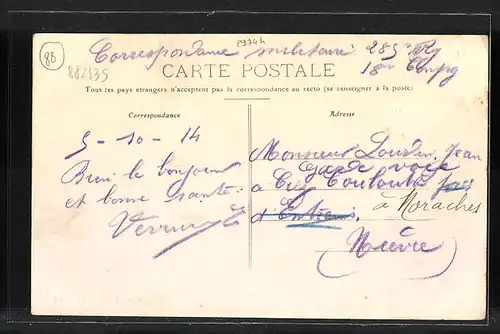 88
2974h
882435
Correspondance militaire 285e Rg
18e Compg
CARTE POSTALE
Tous les pays étrangers n'acceptent pas la correspondance au recto (se renseigner à la poste)
Correspondance
5-10-14
Bien le bonjour
et bonne santé
Adresse
Monsieur Jean
garde voie
a
à Moraches
d'Entrains
Nièvre